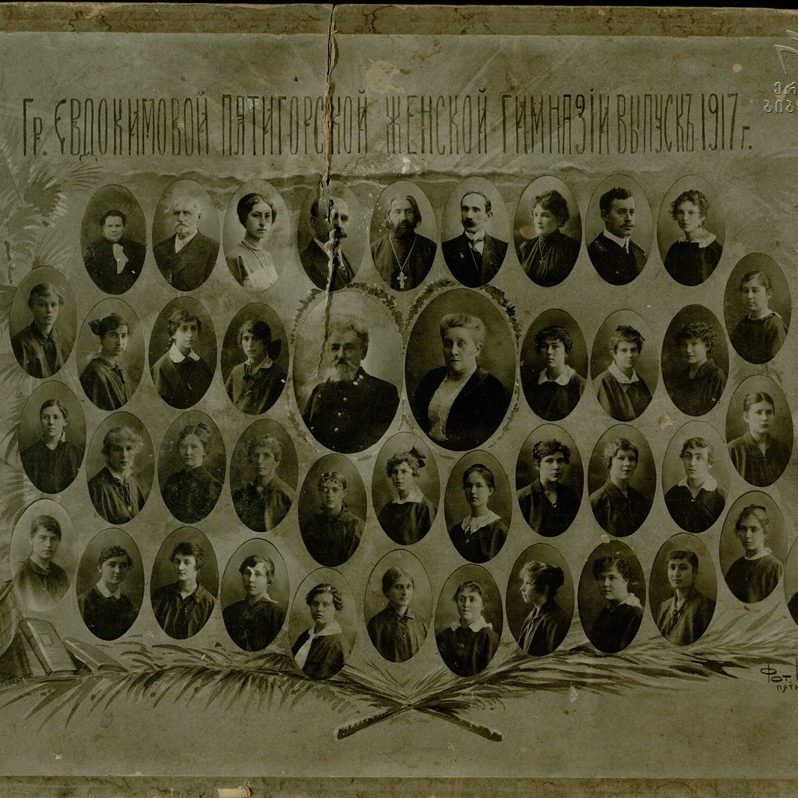 Гр. Евдокимовой Пятигорской женской гимназіи выпускъ 1917 г.
Фот.